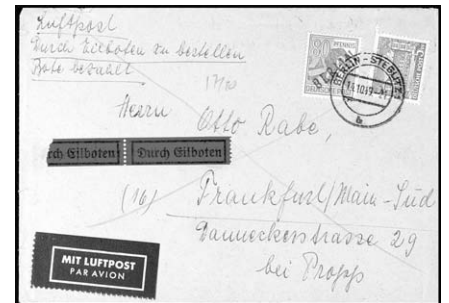 Luftpost
Durch Eilboten zu bestellen
Bote bezahlt
80 PFENNIG
BERLIN
DEUTSCHE POST
BERLIN-STEGLITZ 1
b
Herrn
Otto Rabe,
rch Eilboten Durch Eilboten
(16) Frankfurt/Main-Süd
Danneckerstrasse 29
bei Propps
MIT LUFTPOST
PAR AVION